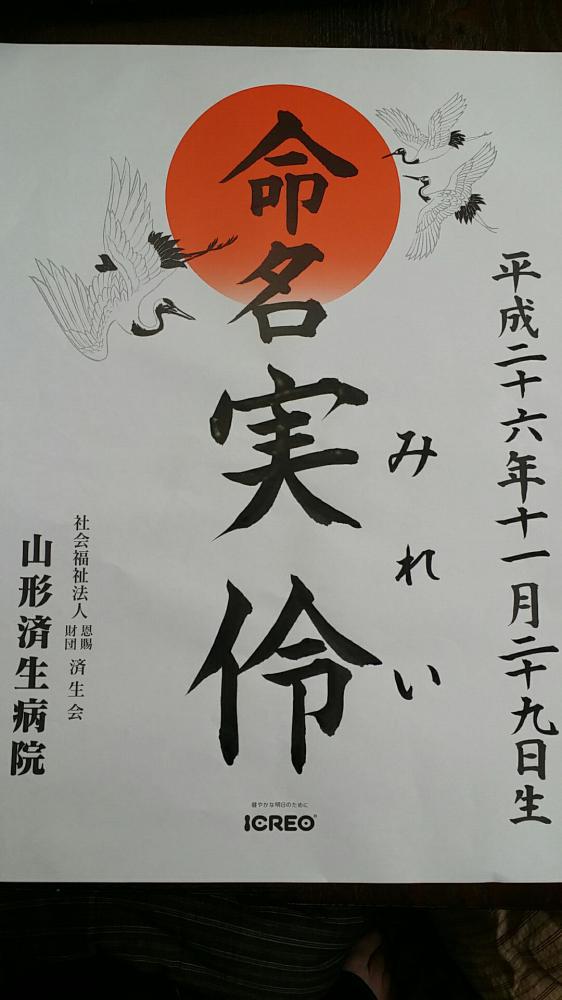 平成二十六年十一月二十九日生
命名
実伶
みれい
社会福祉法人 恩賜財団 済生会
山形済生病院
健やかな明日のために
ICREO